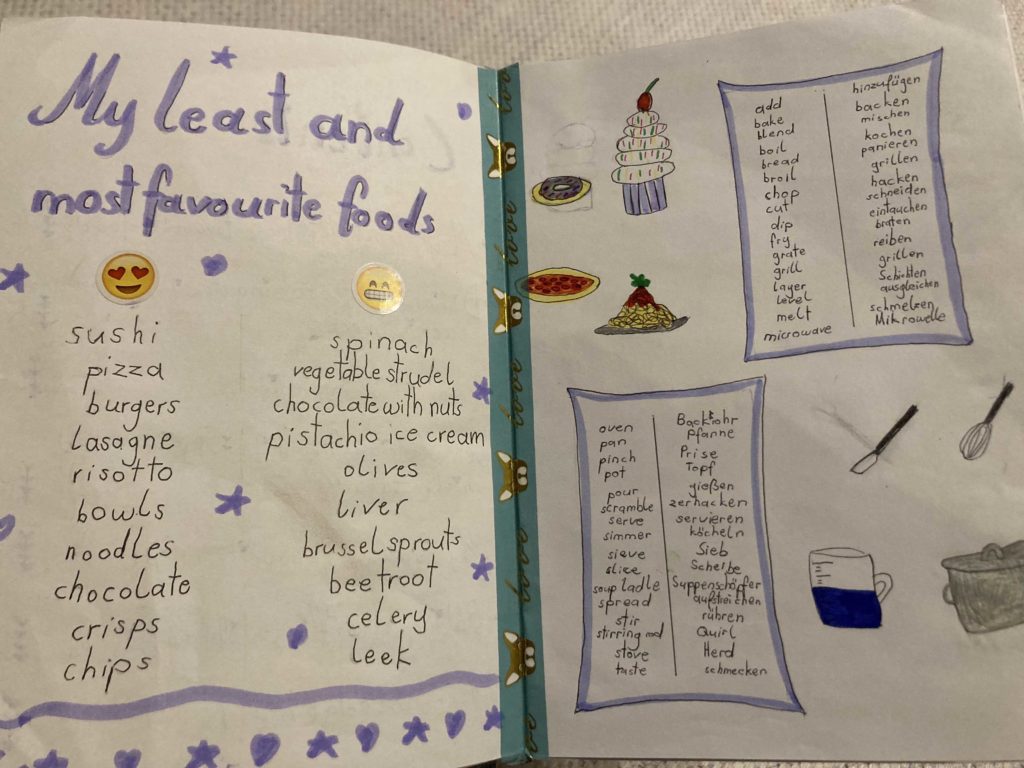 My least and
most favourite foods
sushi
pizza
burgers
lasagne
risotto
bowls
noodles
chocolate
crisps
chips
spinach
vegetable strudel
chocolate with nuts
pistachio ice cream
olives
liver
brussel sprouts
beetroot
celery
leek
love
love
love
love
add
bake
blend
boil
bread
broil
chop
cut
dip
fry
grate
grill
layer
level
melt
microwave
hinzufügen
backen
mischen
kochen
panieren
grillen
hacken
schneiden
eintauchen
braten
reiben
grillen
Schichten
ausgleichen
schmelzen
Mikrowelle
oven
pan
pinch
pot
pour
scramble
serve
simmer
sieve
slice
soup ladle
spread
stir
stirring rod
stove
taste
Backrohr
Pfanne
Prise
Topf
gießen
zerhacken
servieren
köcheln
Sieb
Scheibe
Suppenschöpfer
aufstreichen
rühren
Quirl
Herd
schmecken